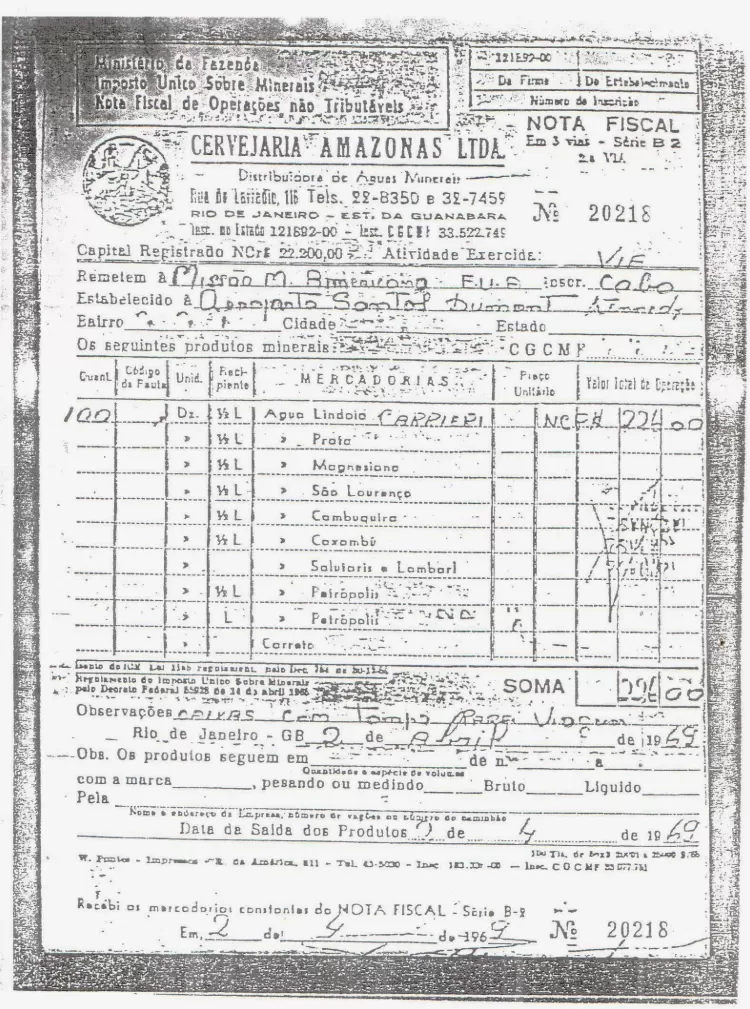 Ministério da Fazenda
Imposto Unico Sobre Minerais
Nota Fiscal de Operações não Tributáveis
121892-00
Da Firma Do Estabelecimento
Número da Inscrição
NOTA FISCAL
Em 3 vias - Série B 2
2a VIA
CERVEJARIA AMAZONAS LTDA.
Distribuidora de Aguas Minerais
Rua do Tels. 22-8350 e 32-7459
RIO DE JANEIRO - EST. DA GUANABARA
Nº 20218
Insc. no Estado 121892-00 - Insc. CGCMF 33.522.749
Capital Registrado NCr$ 22.200,00 Atividade Exercida:
Remetem à Missão M. Americana E.U.A Inscr.
Estabelecido à Aeroporto Santos Dumont
Bairro Cidade Estado
Os seguintes produtos minerais: CGCMF
Quant. Código da Pauta Unid. Reci-piente MERCADORIAS Preço Unitário Valor Total da Operação
100 Dz. ½ L Agua Lindoia NCr$ 224 00
» ½ L » Prata
» ½ L » Magnesiana
» ½ L » São Lourenço
» ½ L » Cambuquira
» ½ L » Caxambú
» » Salutaris e Lambari
» ½ L » Petrópolis
» L » Petrópolis
» Carreto
Isento do ICM Lei 1165 regulament. pelo Dec.
Regulamento do Imposto Unico Sobre Minerais
pelo Decreto Federal 55928 de 14 de abril 1965
SOMA 224 00
Observações CAIXAS Com Tampa Para
Rio de Janeiro - GB 2 de Abril de 1969
Obs. Os produtos seguem em de nº a
Quantidade e espécie de volumes
com a marca , pesando ou medindo Bruto Líquido
Pela
Nome e endereço da Empresa, número de vagões ou número do caminhão
Data da Saída dos Produtos 2 de 4 de 1969
W. Pontes - Impressos - R. da América, - Tel. 43-5030 - Insc. - Insc. CGCMF
Recebi as mercadorias constantes da NOTA FISCAL - Série B-2
Em, 2 de 4 de 1969 Nº 20218